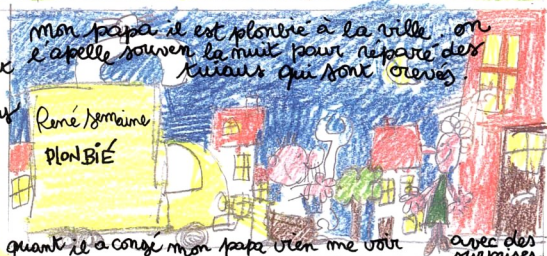 mon papa il est plonbié à la ville. on
l'apelle souven la nuit pour réparé des
tuiaus qui sont crevés.
René Semaine
PLONBIÉ
quant il a congé mon papa vien me voir
avec des
surprises